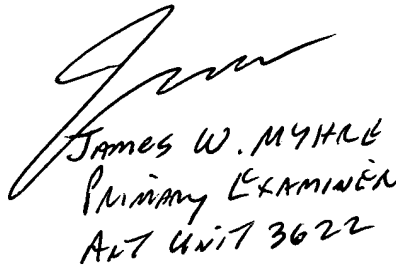 James W. Myhre
Primary Examiner
Art Unit 3622